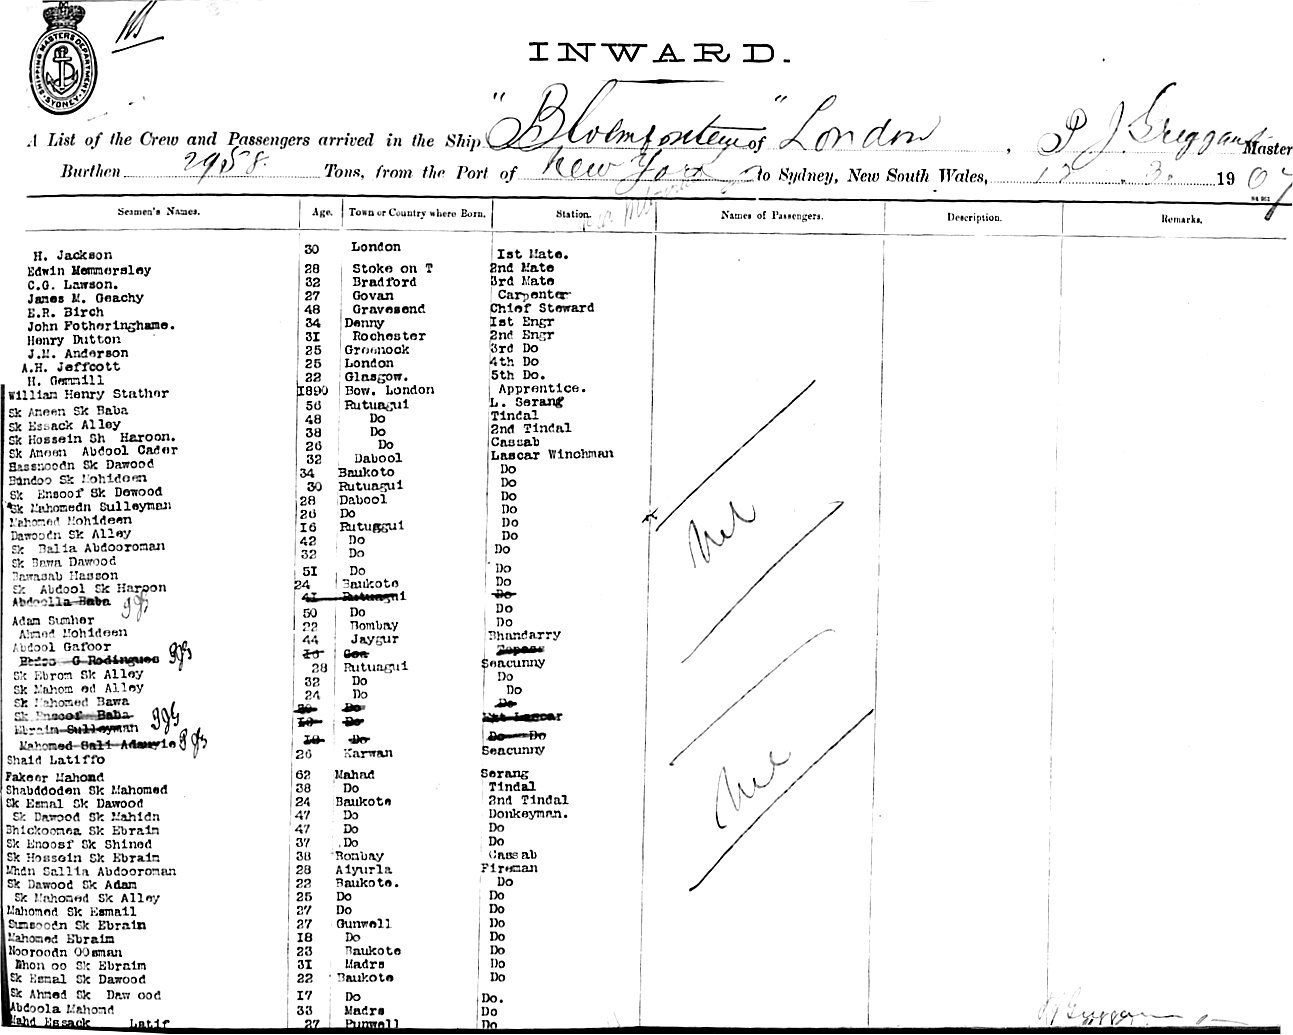 SHIPPING MASTERS DEPARTMENT SYDNEY
INWARD.
A List of the Crew and Passengers arrived in the Ship "Bloemfontein" of London, P J Greggan Master
Burthen 2958 Tons, from the Port of New York to Sydney, New South Wales, 12 . 3. 1907
Seamen's Names. Age. Town or Country where Born. Station. Names of Passengers. Description. Remarks.
H. Jackson 30 London 1st Mate.
Edwin Memmersley 28 Stoke on T 2nd Mate
C.G. Lawson. 32 Bradford 3rd Mate
James M. Geachy 27 Govan Carpenter
E.R. Birch 48 Gravesend Chief Steward
John Fotheringhame. 34 Denny 1st Engr
Henry Dutton 31 Rochester 2nd Engr
J.M. Anderson 25 Greenock 3rd Do
A.H. Jeffcott 25 London 4th Do
H. Gemmill 22 Glasgow. 5th Do.
William Henry Stather 1890 Bow. London Apprentice.
Sk Ameen Sk Baba 56 Rutuagui L. Serang
Sk Essack Alley 48 Do Tindal
Sk Hossein Sh Haroon. 38 Do 2nd Tindal
Sk Ameen Abdool Cader 26 Do Cassab
Hassnoodn Sk Dawood 32 Dabool Lascar Winchman
Bandoo Sk Mohideen 34 Baukoto Do
Sk Ensoof Sk Dowood 30 Rutuagui Do
Sk Mahomedn Sulleyman 28 Dabool Do
Mahomed Mohideen 26 Do Do
Dawoodn Sk Alley 16 Rutuggui Do
Sk Balia Abdooroman 42 Do Do
Sk Bawa Dawood 32 Do Do
Bawasab Hasson 51 Do Do
Sk Abdool Sk Haroon 24 Baukote Do
Abdoolla Baba PJG 41 Rutuagui Do
Adam Sumher 50 Do Do
Ahmed Mohideen 22 Bombay Do
Abdool Gafoor 44 Jaygur Bhandarry
G Rodingues PJG 16 Goa Topass
Sk Ebrom Sk Alley 28 Rutuagui Seacunny
Sk Mahom ed Alley 32 Do Do
Sk Mahomed Bawa 24 Do Do
Sk Ensoof Baba PJG 20 Do Do
Ebraim Sulleyman 18 Do Ext Lascar
Mahomed Sali Adamyie PJG 18 Do Do Do
Shaid Latiffo 26 Karwan Seacunny
Fakeer Mahomd 62 Mahad Serang
Shabddoden Sk Mahomed 38 Do Tindal
Sk Esmal Sk Dawood 24 Baukote 2nd Tindal
Sk Dawood Sk Mahidn 47 Do Donkeyman.
Bhickoomea Sk Ebraim 47 Do Do
Sk Enoosf Sk Shined 37 Do Do
Sk Hossein Sk Ebraim 38 Bombay Cassab
Mhdn Sallia Abdooroman 28 Aiyurla Fireman
Sk Dawood Sk Adam 22 Baukote. Do
Sk Mahomed Sk Alley 25 Do Do
Mahomed Sk Esmail 27 Do Do
Sumsoodn Sk Ebrain 27 Gunwell Do
Mahomed Ebraim 18 Do Do
Nooroodn OOsman 23 Baukote Do
oo Sk Ebraim 31 Madra Do
Sk Esmal Sk Dawood 22 Baukote Do
Sk Ahmed Sk Daw ood 17 Do Do.
Abdoola Mahomd 33 Madra Do
Mahd Essack Latif 27 Punwell Do
Nil
Nil